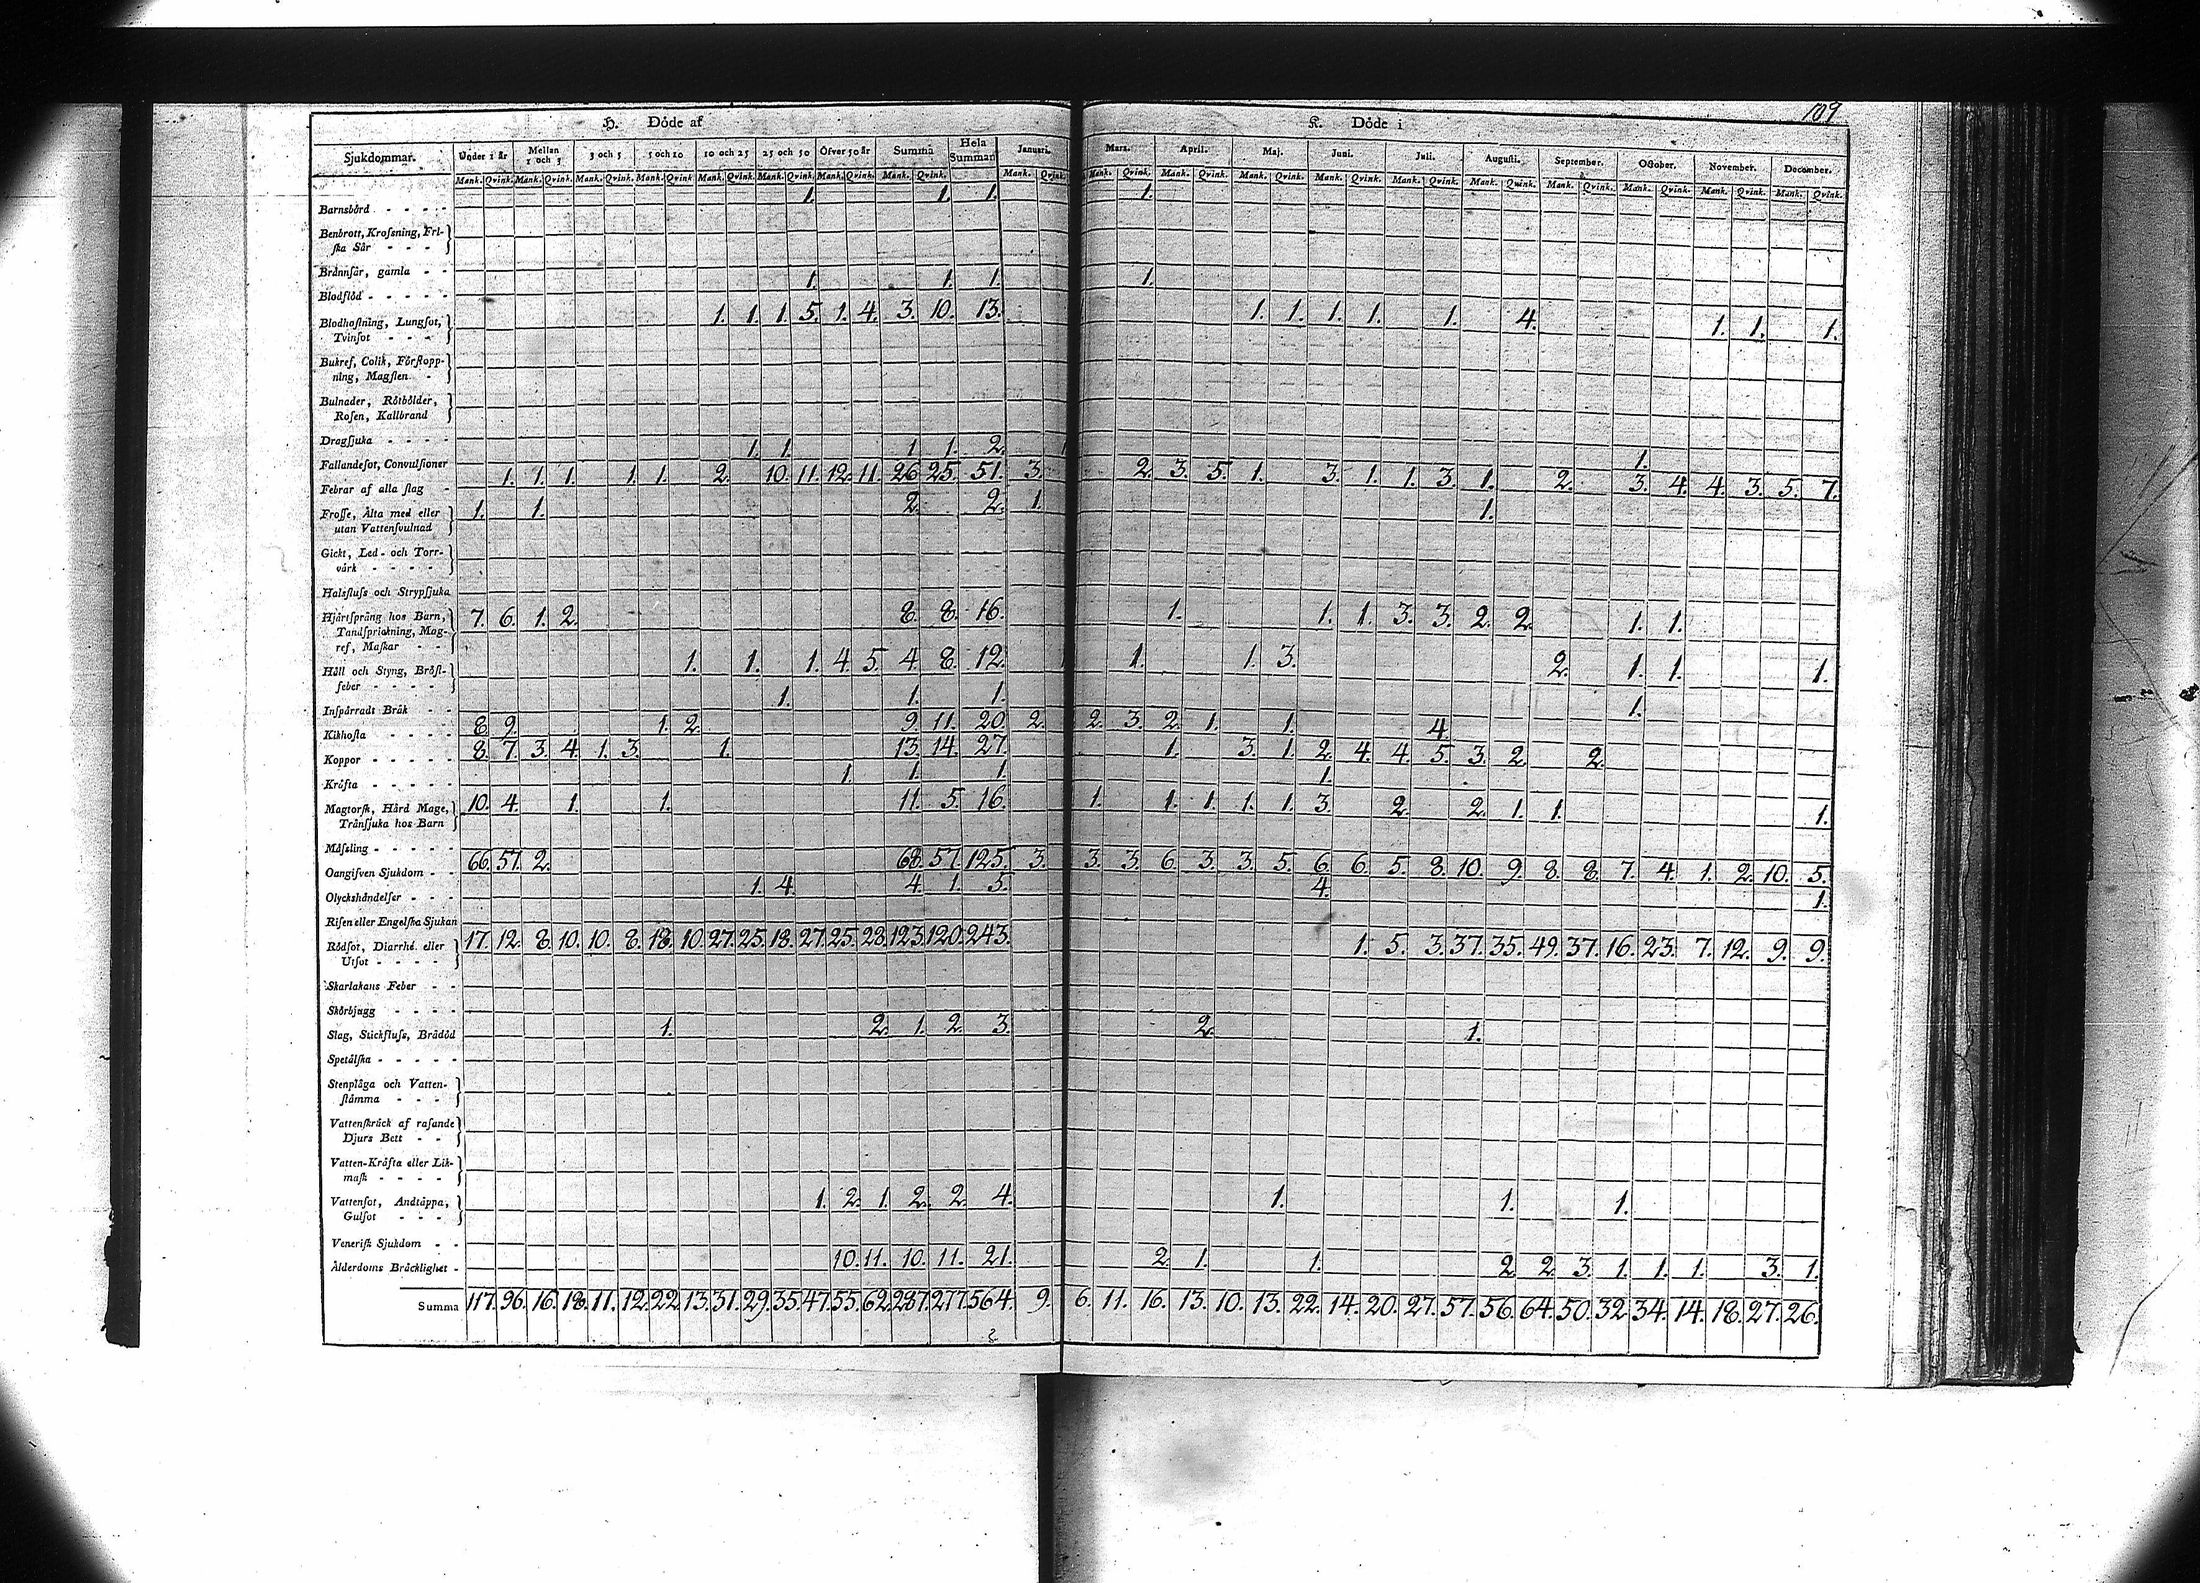 109
H. Döde af K. Döde i
Sjukdommar. Under 1 år Mellan 1 och 3 3 och 5 5 och 10 10 och 25 25 och 50 Öfver 50 år Summa Hela Summan Januari. Mars. April. Maj. Juni. Juli. Augusti. September. October. November. December.
Mank. Qvink. Mank. Qvink. Mank. Qvink. Mank. Qvink. Mank. Qvink. Mank. Qvink. Mank. Qvink. Mank. Qvink. Mank. Qvink. Mank. Qvink. Mank. Qvink. Mank. Qvink. Mank. Qvink. Mank. Qvink. Mank. Qvink. Mank. Qvink. Mank. Qvink. Mank. Qvink. Mank. Qvink.
Barnsbörd 1. 1. 1. 1.
Benbrott, Krossning, Fri-
ska Sår
Brännsår, gamla
Blodflöd 1. 1. 1. 1.
Blodhostning, Lungsot, 1. 1. 1. 5. 1. 4. 3. 10. 13. 1. 1. 1. 1. 1. 4. 1. 1. 1.
Tvinsot
Bukref, Colik, Förstopp-
ning, Magsten
Bulnader, Rötbölder,
Rosen, Kallbrand
Dragsjuka
Fallandesot, Convulsioner 1. 1. 1 1. 2. 1 1.
Febrar af alla slag 1. 1. 1. 1. 1. 2. 10. 11. 12. 11. 26 25. 51. 3. 2. 3. 5. 1. 3. 1. 1. 3. 1. 2. 3. 4. 4. 3. 5. 7.
Frosse, Älta med eller 1. 1. 2. 2. 1. 1.
utan Vattensvulnad
Gickt, Led- och Torr-
värk
Halsfluss och Strypsjuka
Hjärtspräng hos Barn, 7. 6. 1. 2. 8. 8. 16. 1. 1. 1. 3. 3. 2. 2. 1. 1.
Tandsprickning, Mag-
ref, Maskar
Håll och Styng, Bröst- 1. 1. 1. 4. 5. 4. 8. 12. 1 1. 1. 3. 2. 1. 1. 1.
feber
Inspärradt Bråk 1. 1. 1. 1.
Kikhosta 8. 9. 1. 2. 9. 11. 20. 2. 2. 3. 2. 1. 1. 4.
Koppor 8. 7. 3. 4. 1. 3. 1. 13. 14. 27. 1. 3. 1. 2. 4. 4. 5. 3. 2. 2.
Kräfta 1. 1. 1. 1.
Magtorsk, Hård Mage, 10. 4. 1. 1. 11. 5. 16. 1. 1. 1. 1. 1. 3. 2. 2. 1. 1. 1.
Tränsjuka hos Barn
Mässling
Oangifven Sjukdom 66. 57. 2. 68. 57. 125. 3. 3. 3. 6. 3. 3. 5. 6. 6. 5. 8. 10. 9. 8. 8. 7. 4. 1. 2. 10. 5.
Olyckshändelser 1. 4. 4. 1. 5. 4. 1.
Risen eller Engelska Sjukan
Rödsot, Diarrhé. eller 17. 12. 8. 10. 10. 8. 18. 10. 27. 25. 18. 27. 25. 28. 123. 120. 243. 1. 5. 3. 37. 35. 49. 37. 16. 23. 7. 12. 9. 9.
Utsot
Skarlakans Feber
Skörbjugg
Slag, Stickfluss, Brådöd 1. 2. 1. 2. 3. 2. 1.
Spetälska
Stenplåga och Vatten-
stämma
Vattenskräck af rasande
Djurs Bett
Vatten-Kräfta eller Lik-
mask
Vattensot, Andtäppa, 1. 2. 1. 2. 2. 4. 1. 1. 1.
Gulsot
Venerisk Sjukdom
Ålderdoms Bräcklighet 10. 11. 10. 11. 21. 2. 1. 1. 2. 2. 3. 1. 1. 1. 3. 1.
Summa 117. 96. 16. 18. 11. 12. 22. 13. 31. 29. 35. 47. 55. 62. 287. 277. 564. 9. 6. 11. 16. 13. 10. 13. 22. 14. 20. 27. 57. 56. 64. 50. 32. 34. 14. 18. 27. 26.